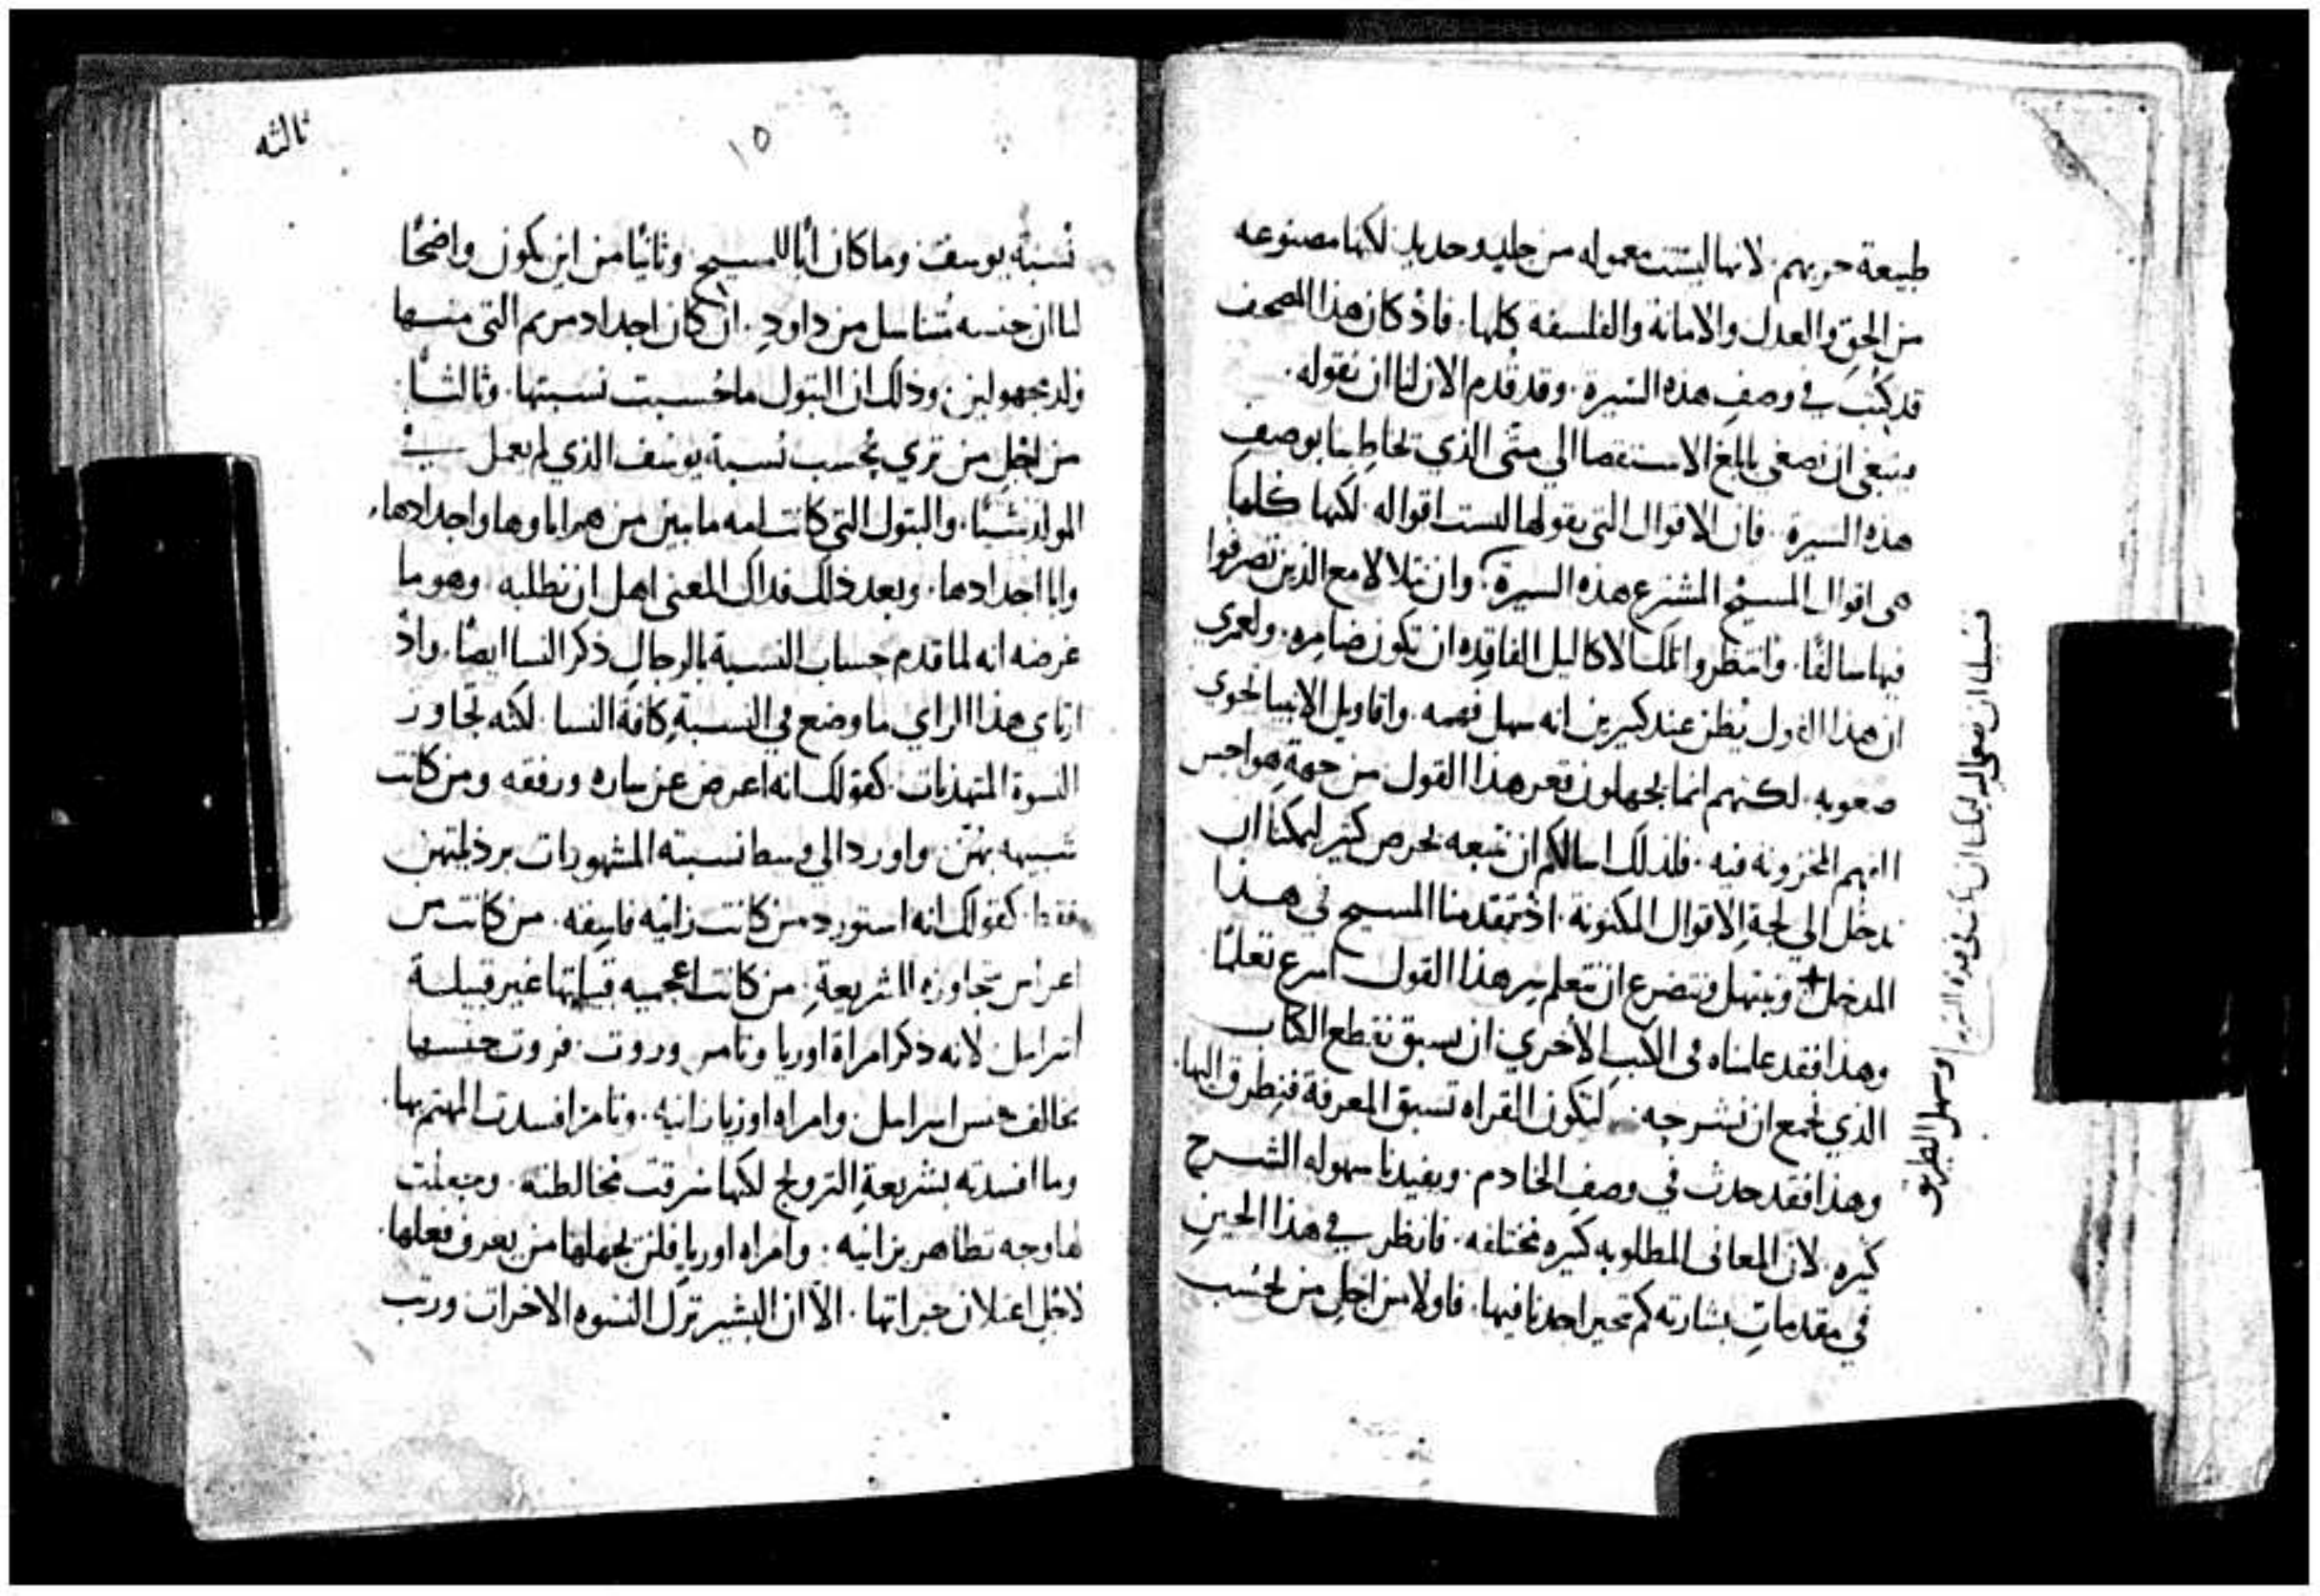 طبيعة حربهم. لانها ليست معموله من جليد وحديد لكنها مصنوعه
من الحق والعدل والامانة والفلسفة كلها. فاذ كان هذا المصحف
قد كتب في وصف هذه السيرة. وقد قدم الان لنا ان نقوله.
ينبغي ان نصغي بابلغ الاستقصا الي متى الذي يخاطبنا بوصف
هذه السيرة. فان الاقوال التي يقولها ليست اقواله لكنها كلها
هي اقوال المسيح المشترع هذه السيرة. وان نتلالا مع الذين تصرفوا
فيها سالفًا. وانتظروا تلك الاكاليل الفاقده ان تكون ضامره. ولعمري
ان هذا القول يُظن عند كثيرين انه سهل فهمه. واقاويل الانبيا تحوي
صعوبه. لكنهم انما يجهلون قعر هذا القول من جهة هواجس
الفهم المخزونه فيه. فلذلك اسالكم ان نتبعه بحرص كثير ليمكنا ان
ندخل الي لجة الاقوال المكتوبة. اذ يتقدمنا المسيح في هذا
المدخل + ونبتهل ونتضرع ان نتعلم من هذا القول اسرع تعلمًا
وهذا فقد عملناه في الكتب الاخري ان يسبق نقطع الكتاب
الذي نجمع ان نشرحه. لتكون القراه تسبق المعرفة فنطرق اليها.
وهذا فقد حدث في وصف الخادم. ويفيدنا سهوله الشرح
كثيره. لان المعاني المطلوبه كثيره مختلفه. فانظر في هذا الحين
في مقدمات بشارته كم تحير احدنا فيها. فاولا من اجل من تحسب
وسهل الطريق
ثالثه
١٥
نسبة يوسف وما كان ابًا للمسيح. وثانيًا من اين يكون واضحًا
لنا ان جنسه متناسل من داود. ان كان اجداد مريم التي منها
ولد مجهولين. وذلك ان البتول ما حُسبت نسبتها. وثالثًا
من اجل من تري تحسب نسبة يوسف الذي لم يعمل في
المولد شيئًا. والبتول التي كانت امه ما بين من هم اباوها واجدادها.
وابا اجدادها. وبعد ذلك فذاك المعني اهل ان نطلبه. وهو ما
غرضه انه لما قدم حساب النسبة بالرجال ذكر النسا ايضًا. واذ
ارتاي هذا الراي ما وضع في النسبة كافة النسا. لكنه تجاوز
النسوة المتهذبات كقولك انه اعرض عن ساره ورفقه ومن كانت
شبيهه بهن. واورد الي وسط نسبته المشهورات برذيلتهن
فقط. كقولك انه استورد من كانت زانيه فاسقه. من كانت من
اعراس متجاوزه الشريعة. من كانت اعجميه قبيلتها غير قبيلة
اسرايل. لانه ذكر امراة اوريا وتامر وروت. فروت جنسها
يخالف جنس اسرايل. وامراه اوريا زانيه. وتامر افسدت المهتم بها.
وما افسدته بشريعة التزويج لكنها سرقت مخالطته. وجعلت
لها وجه تظاهر بزانيه. وامراه اوريا فلن يجهلها من يعرف فعلها.
لاجل اعلان جراتها. الا ان البشير ترك النسوه الاخرات ورتب